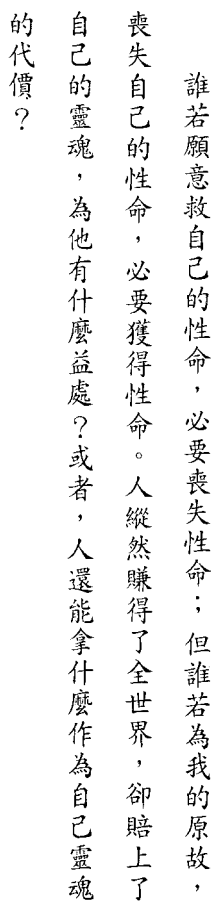 誰若願意救自己的性命，必要喪失性命；但誰若為我的原故，
喪失自己的性命，必要獲得性命。人縱然賺得了全世界，卻賠上了
自己的靈魂，為他有什麼益處？或者，人還能拿什麼作為自己靈魂
的代價？